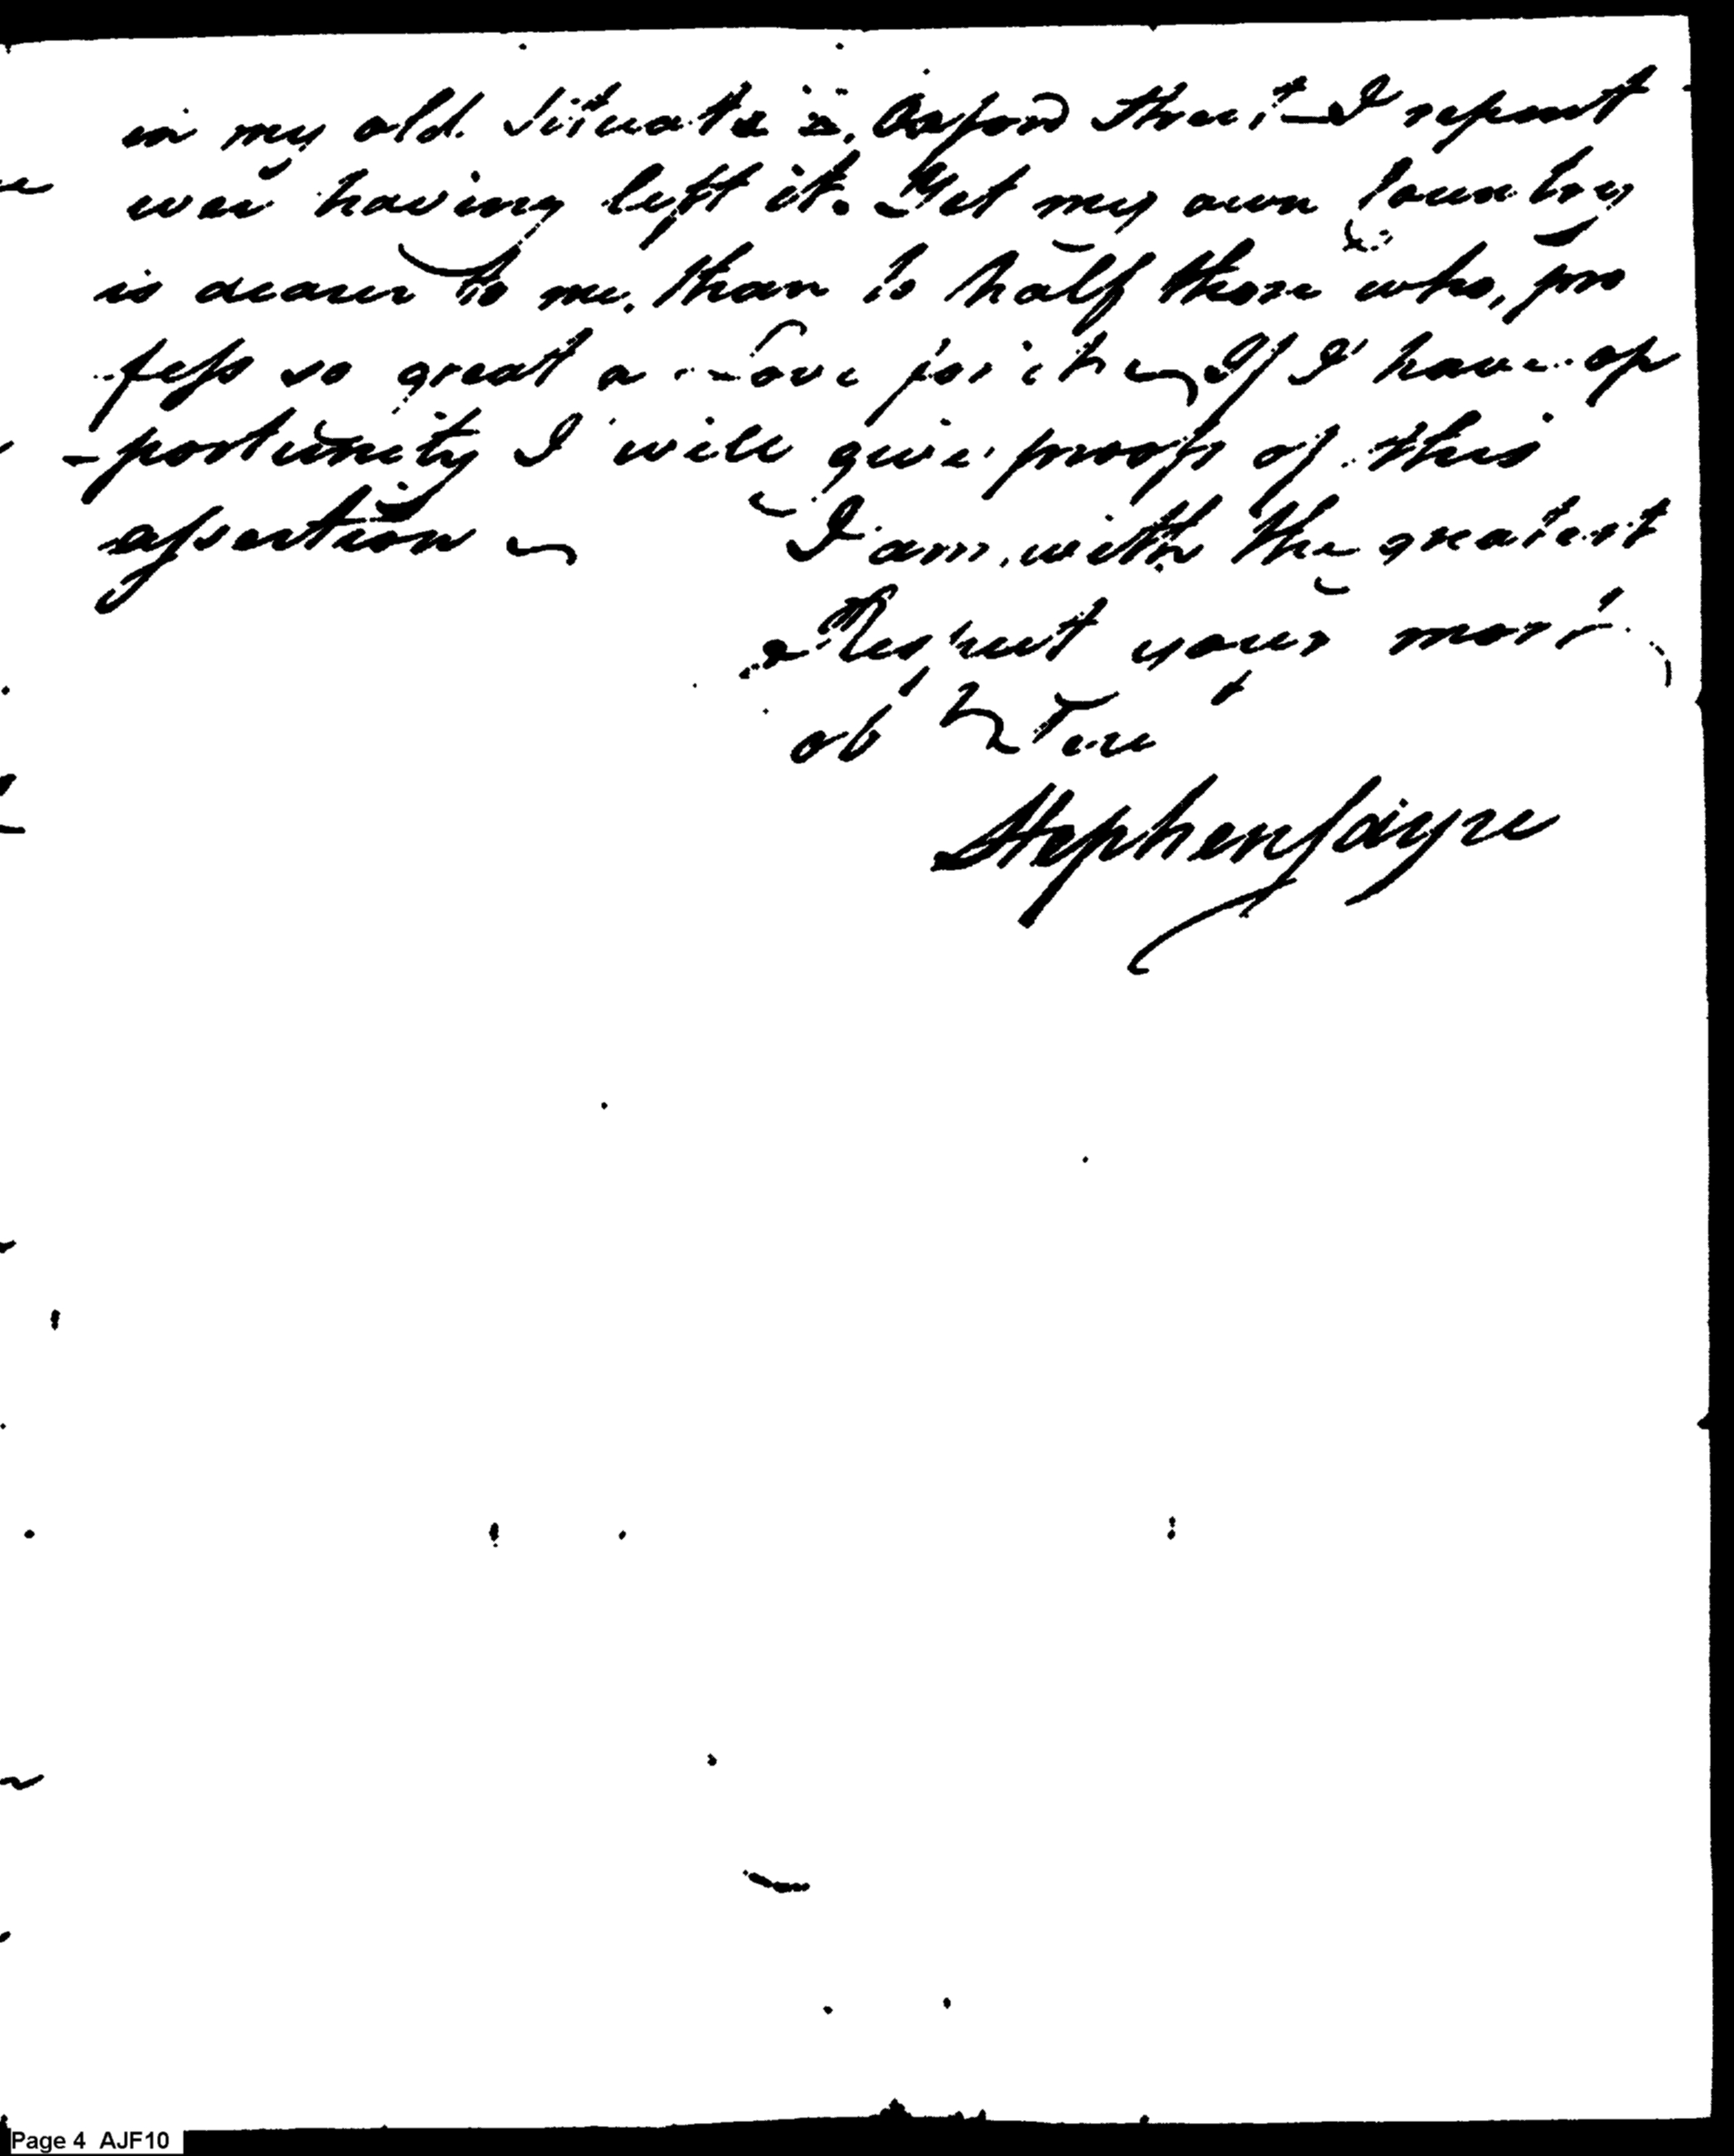 in my old Situation, Aspond that I repent
ever having left it. Yet my own Country
is dearer to me, than to half those who, pro
-fess so great a Love for it. If I have op
-portunity I will give proofs of this
assertion
I am, with the greatest
Respect yours most
ob
Stephen Sayre
Page 4 AJF10